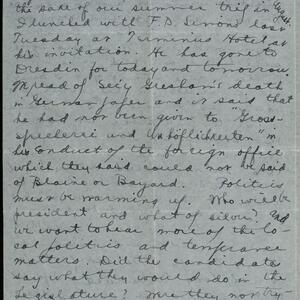 the sake of our summer trip in Aug.
I lunched with F.D. Simons last
Tuesday at Terminus Hotel at
his invitation. He has gone to
Dresden for today and tomorrow.
I read of Secy Gresham's death
in German paper and it said that
he had not been given to "Gross-
sprecherei und unhöflichkeiten" in
his conduct of the foreign office
which they said could not be said
of Blaine or Bayard. Politics
must be warming up. Who will be
president and what of silver? And
we want to hear more of the lo-
cal politics and temperance
matters. Did the candidates
say what they would do in the
Legislature? Were they not try-